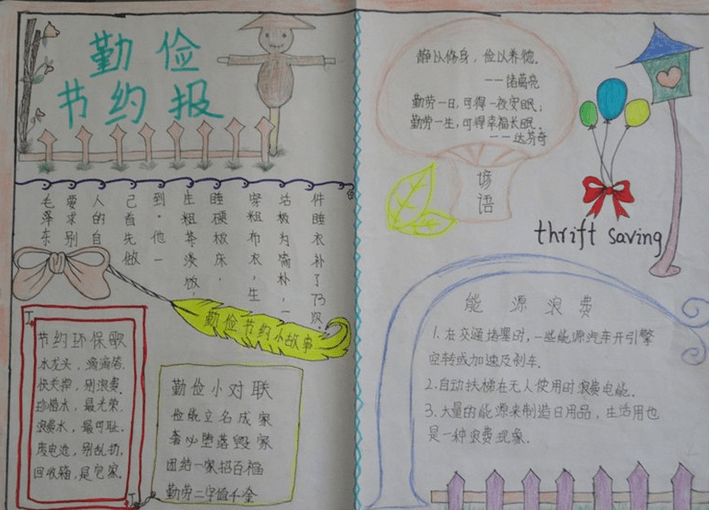 勤俭
节约报
毛泽东
要求别
人的自
己首先做
到。他一
生粗茶淡饭,
睡硬板床,
穿粗布衣,生
活极为简朴,一
件睡衣补了73次。
勤俭节约小故事
节约环保歌
水龙头,滴滴答.
快关掉,别浪费.
珍惜水,最光荣.
浪费水,最可耻.
废电池,别乱扔.
回收箱,是它家.
勤俭小对联
俭能立名成家
奢必堕落毁家
团结一家招百福
勤劳二字值千金
静以修身,俭以养德.
——诸葛亮
勤劳一日,可得一夜安眠;
勤劳一生,可得幸福长眠.
——达芬奇
谚语
thrift saving
能源浪费
1.在交通堵塞时,一些能源汽车开引擎
空转或加速及刹车.
2.自动扶梯在无人使用时浪费电能.
3.大量的能源来制造日用品,生活用也
是一种浪费现象.